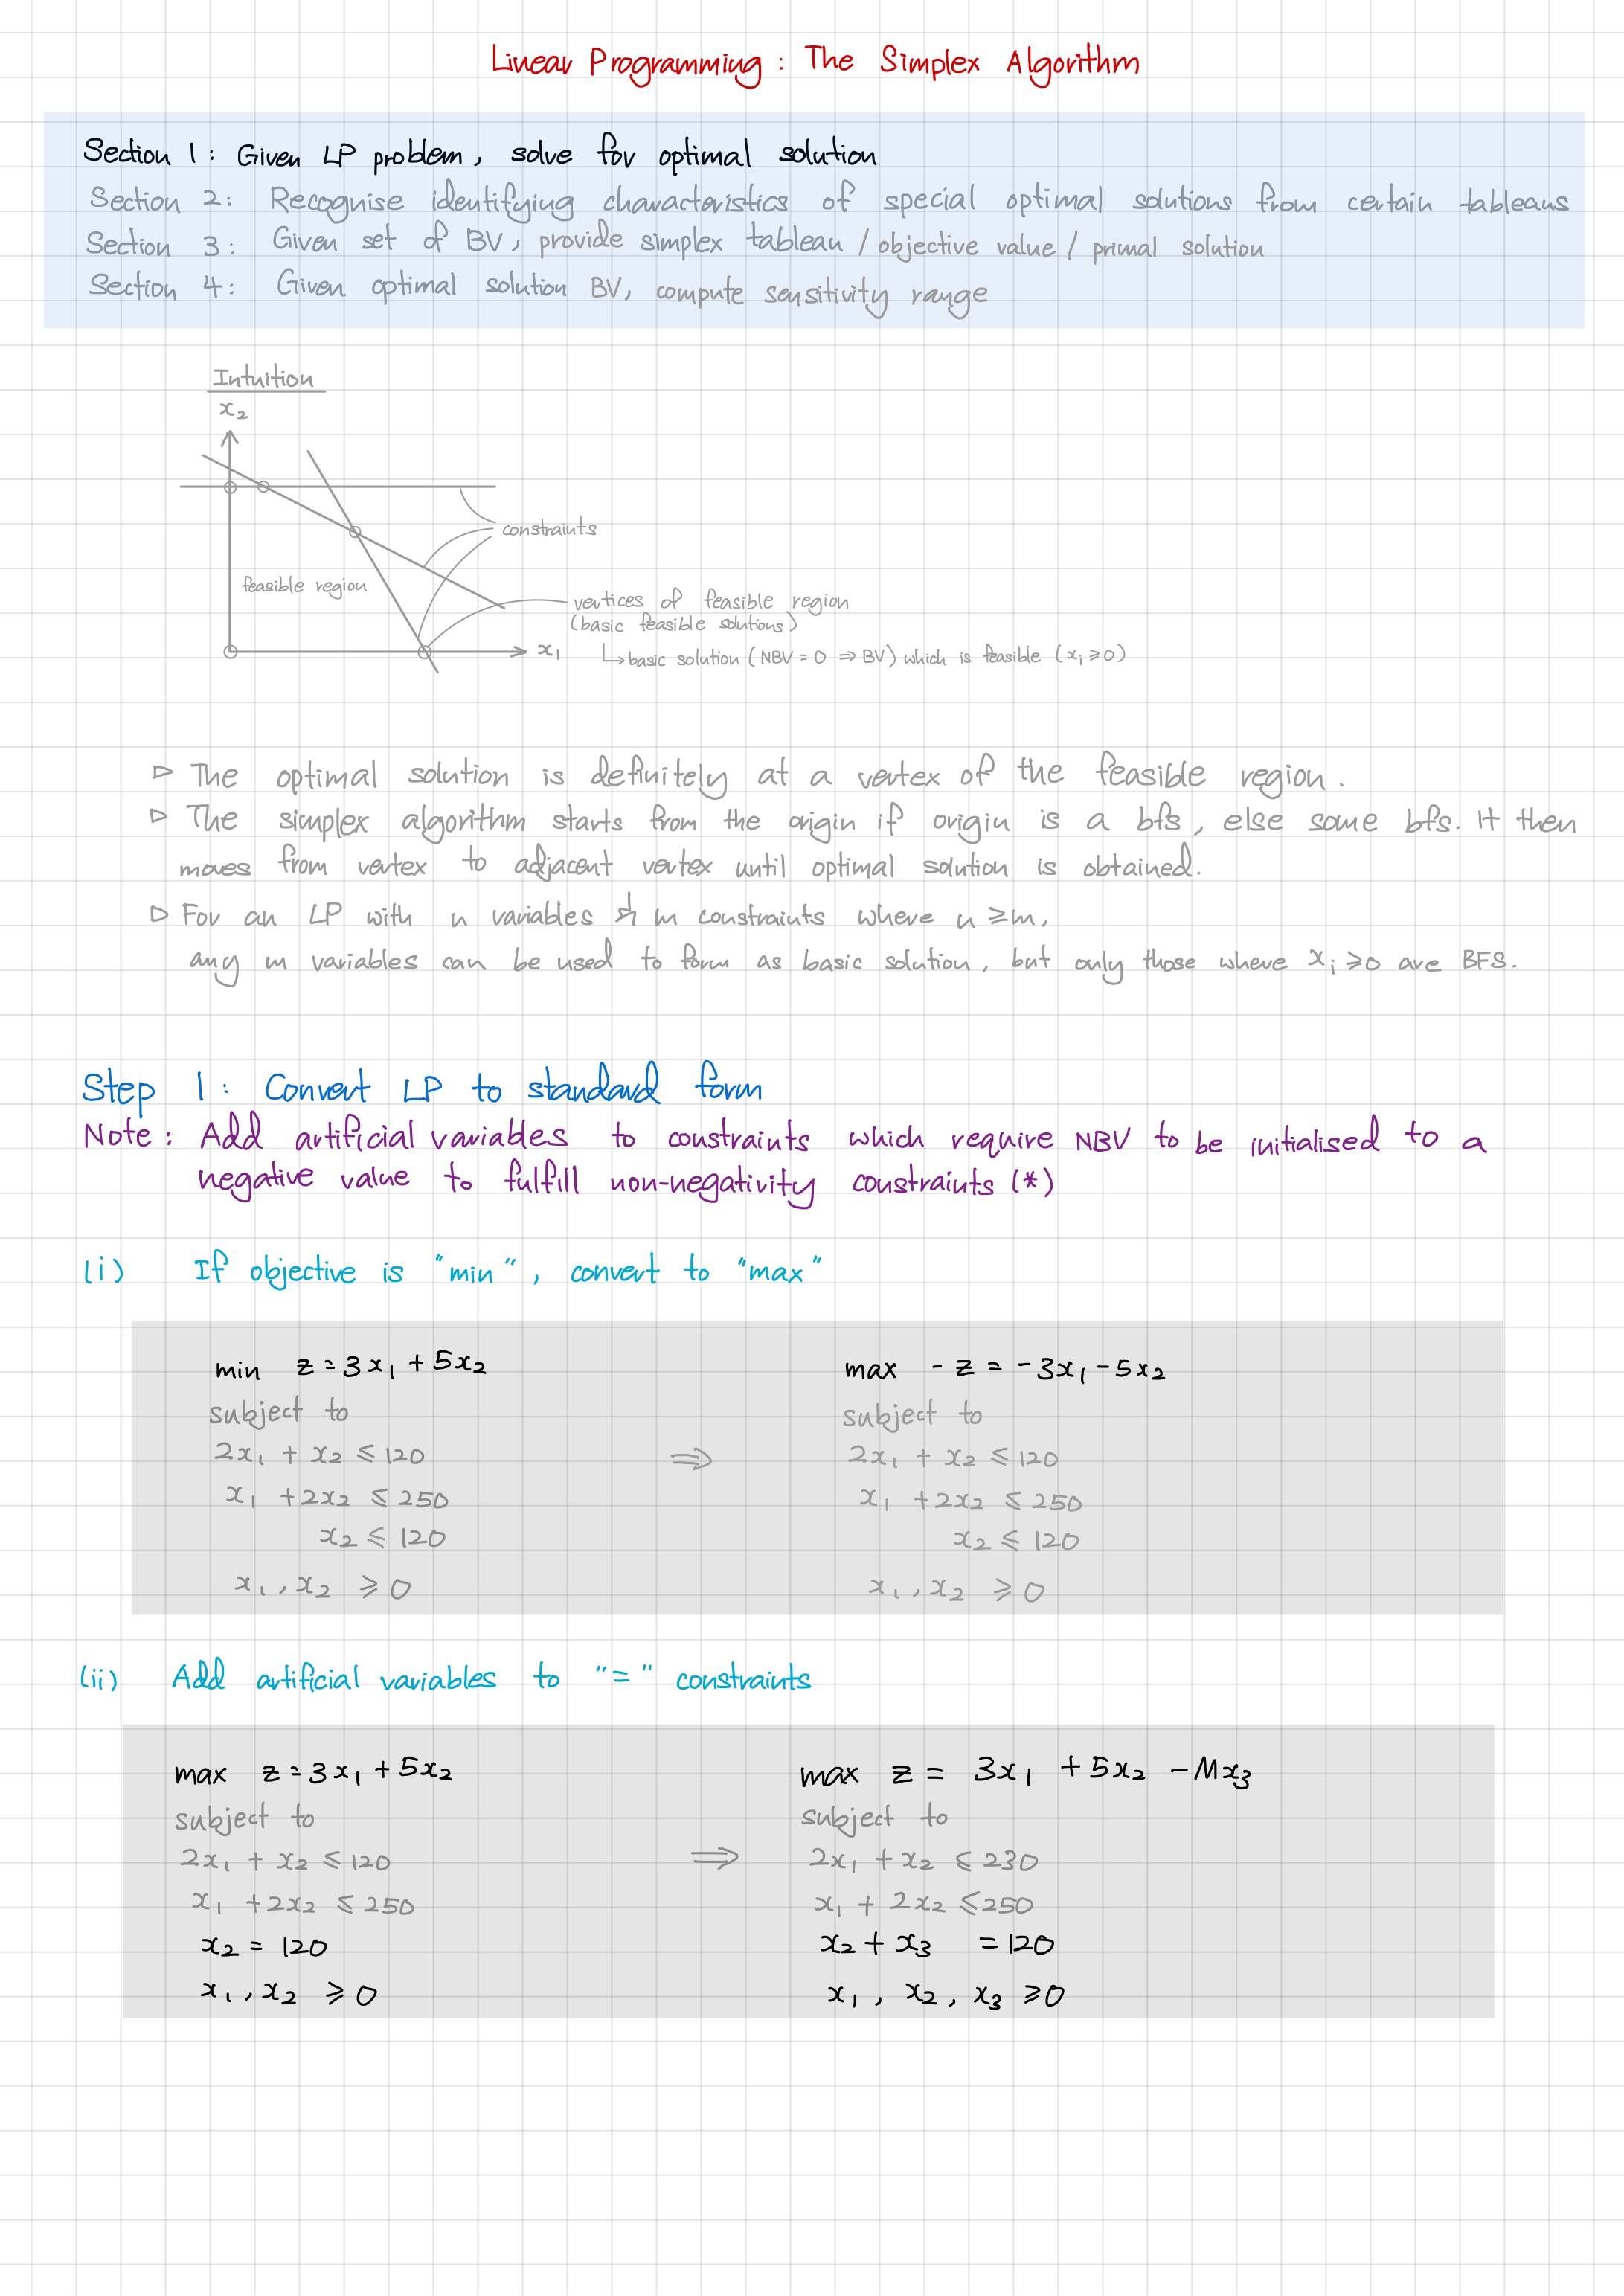 Linear Programming : The Simplex Algorithm
Section 1: Given LP problem, solve for optimal solution
Section 2: Recognise identifying characteristics of special optimal solutions from certain tableaus
Section 3: Given set of BV, provide simplex tableau / objective value / primal solution
Section 4: Given optimal solution BV, compute sensitivity range
Intuition
x₂
constraints
feasible region
vertices of feasible region
(basic feasible solutions)
x₁
↳ basic solution (NBV = 0 ⇒ BV) which is feasible (xᵢ ≥ 0)
▷ The optimal solution is definitely at a vertex of the feasible region.
▷ The simplex algorithm starts from the origin if origin is a bfs, else some bfs. It then
moves from vertex to adjacent vertex until optimal solution is obtained.
▷ For an LP with n variables & m constraints where n ≥ m,
any m variables can be used to form as basic solution, but only those where xᵢ ≥ 0 are BFS.
Step 1: Convert LP to standard form
Note: Add artificial variables to constraints which require NBV to be initialised to a
negative value to fulfill non-negativity constraints (*)
(i) If objective is "min", convert to "max"
min z = 3x₁ + 5x₂
subject to
2x₁ + x₂ ≤ 120
x₁ + 2x₂ ≤ 250
x₂ ≤ 120
x₁, x₂ ≥ 0
⇒
max -z = -3x₁ - 5x₂
subject to
2x₁ + x₂ ≤ 120
x₁ + 2x₂ ≤ 250
x₂ ≤ 120
x₁, x₂ ≥ 0
(ii) Add artificial variables to "=" constraints
max z = 3x₁ + 5x₂
subject to
2x₁ + x₂ ≤ 120
x₁ + 2x₂ ≤ 250
x₂ = 120
x₁, x₂ ≥ 0
⇒
max z = 3x₁ + 5x₂ - Mx₃
subject to
2x₁ + x₂ ≤ 230
x₁ + 2x₂ ≤ 250
x₂ + x₃ = 120
x₁, x₂, x₃ ≥ 0